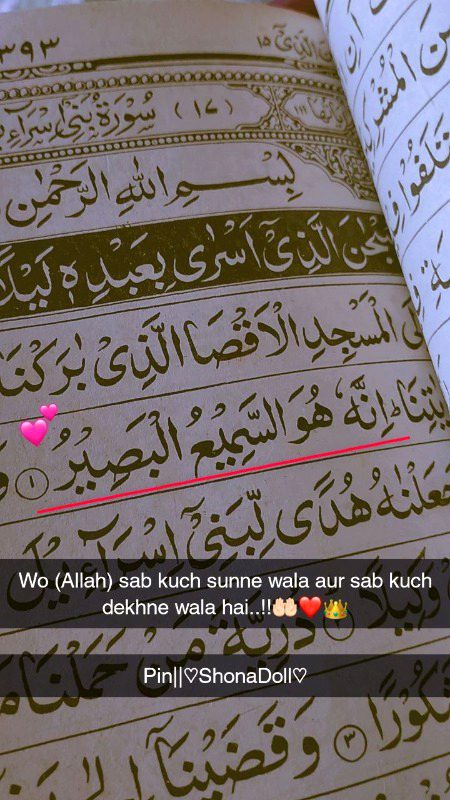 ٣٩٣
١٥
(١٧) سُوْرَةُ بَنِىْٓ اِسْرَآءِ
بِسْمِ اللّٰهِ الرَّحْمٰنِ
الَّذِىْٓ اَسْرٰى بِعَبْدِهٖ لَيْلًا
الْمَسْجِدِ الْاَقْصَا الَّذِىْ بٰرَكْنَا
اِنَّهٗ هُوَ السَّمِيْعُ الْبَصِيْرُ ①
هُدًى لِّبَنِىْٓ اِسْرَآءِيْلَ
Wo (Allah) sab kuch sunne wala aur sab kuch
dekhne wala hai..!!🤲🏻❤️👑
ذُرِّيَّةَ مَنْ حَمَلْنَا
Pin||♡ShonaDoll♡
شَكُوْرًا ③ وَقَضَيْنَآ